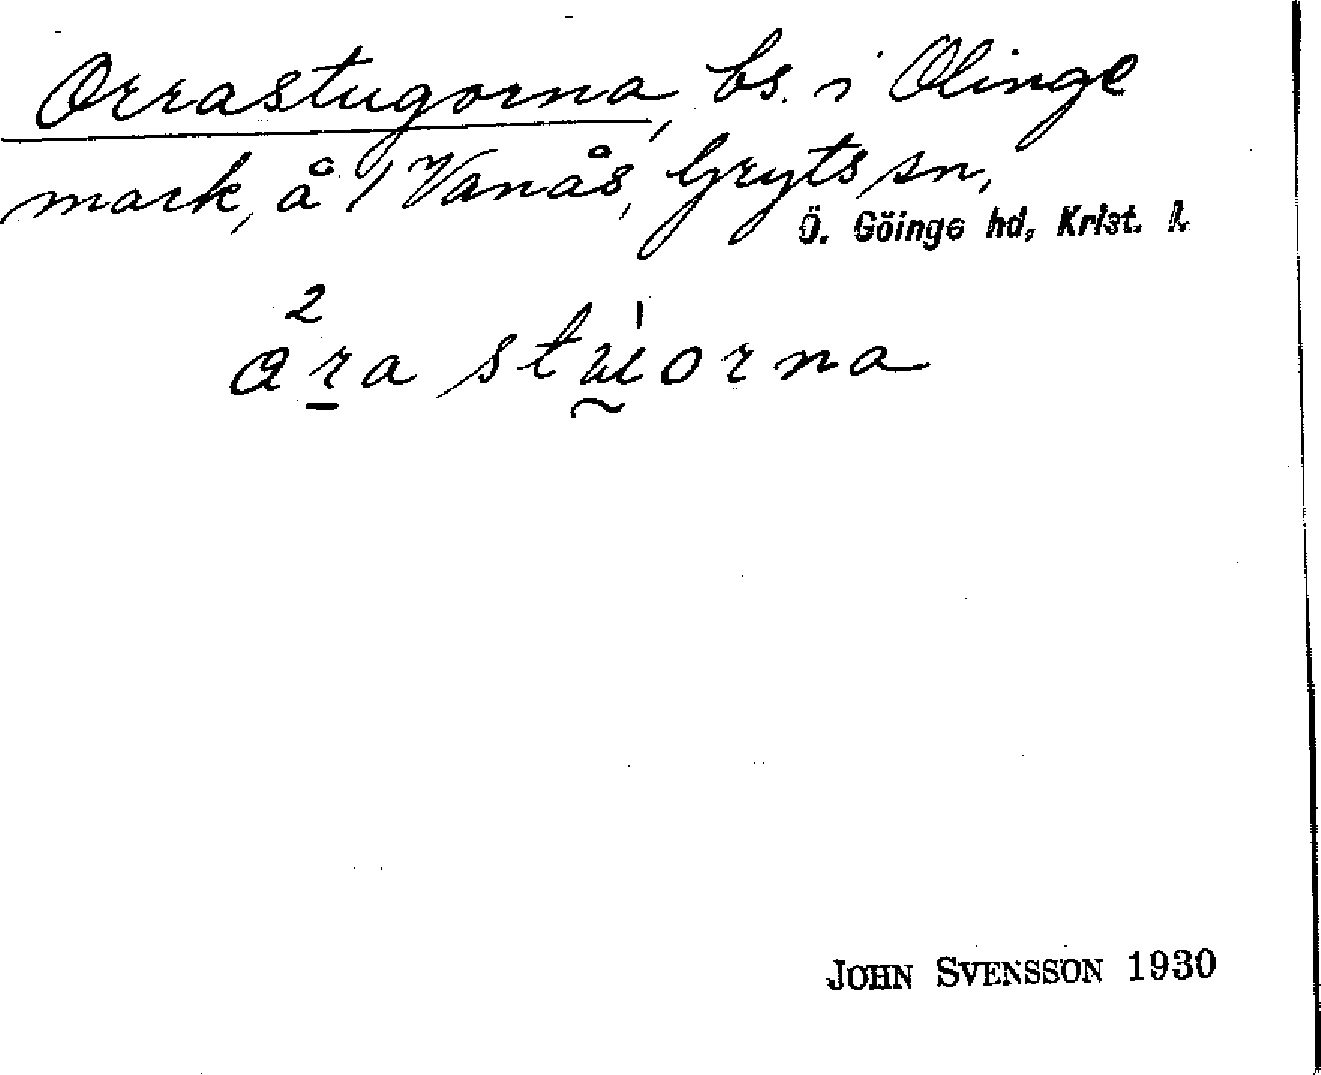 Orrastugorna, bs. i Olinge
mark, å 1 Vanås, Gryts sn,
Ö. Göinge hd, Krist. l.
2
ara stuorna
JOHN SVENSSON 1930